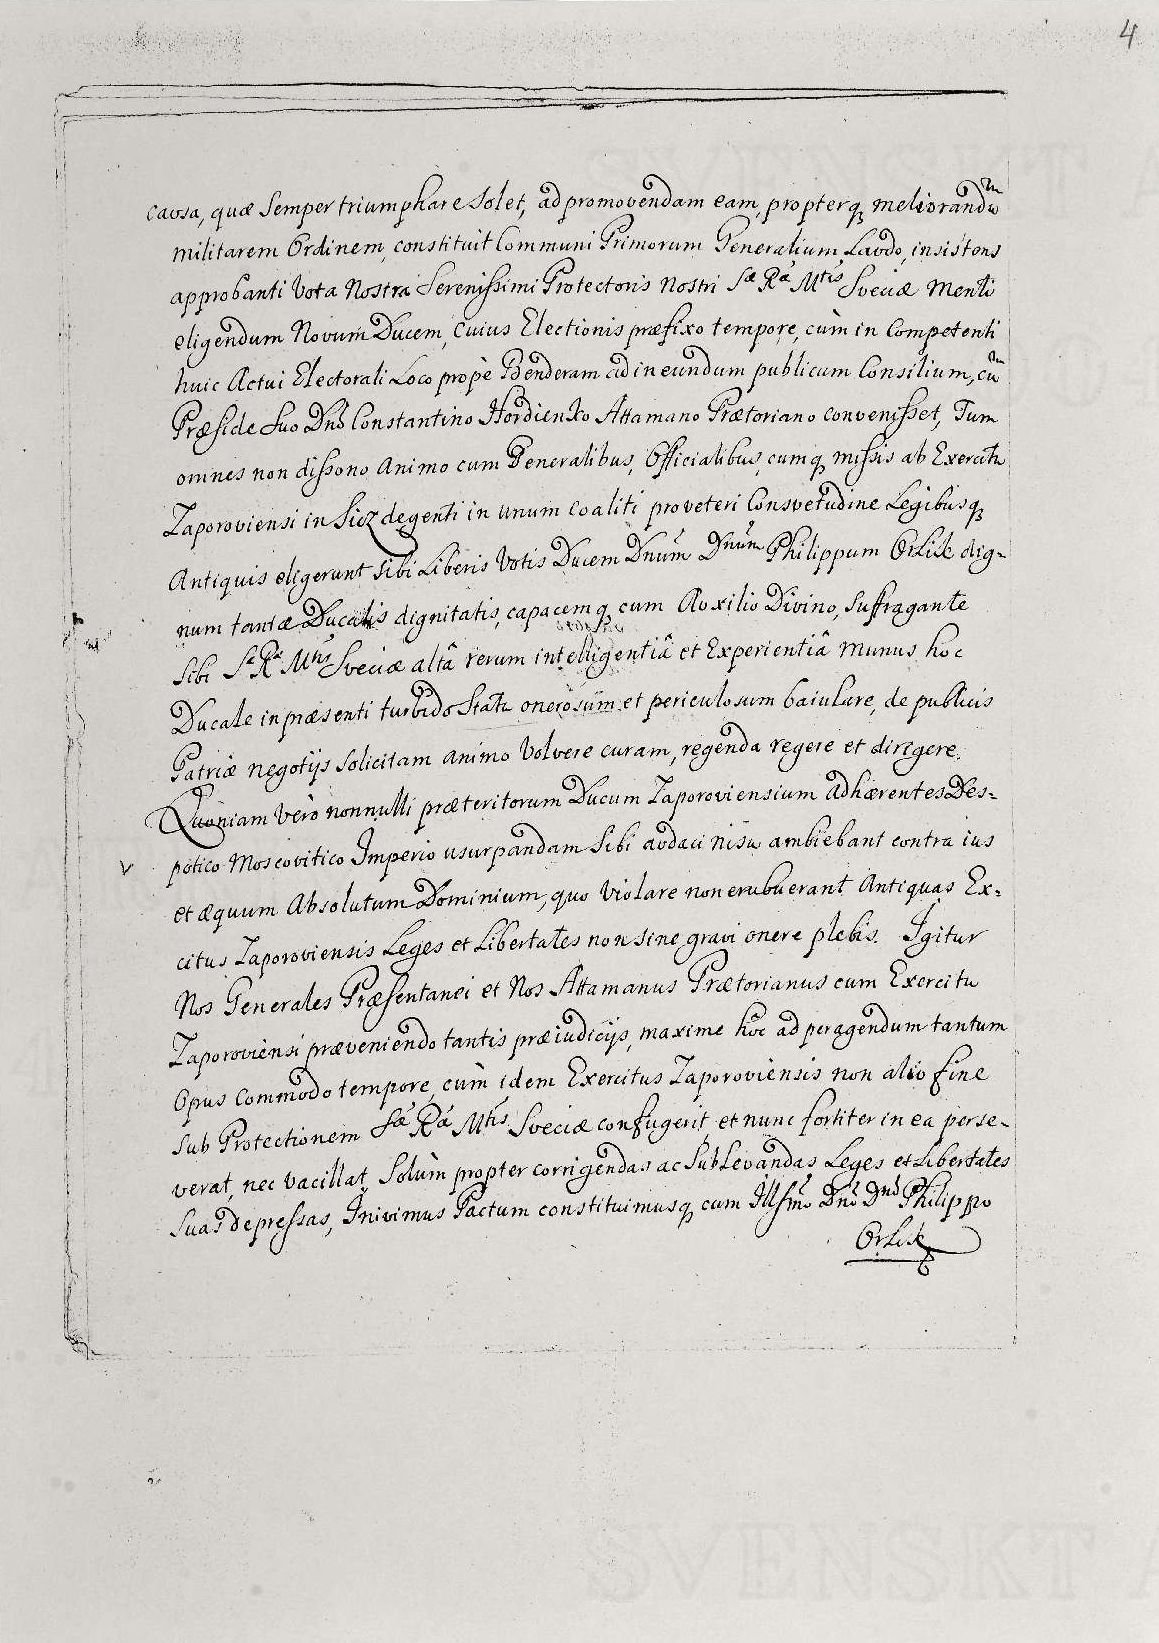 4
causa, quæ Semper triumphare solet, ad promovendam eam, propterq meliorandũ
militarem Ordinem, constituit Communi Primorum Generalium Laudo, insistens
approbanti Vota Nostra Serenissimi Protectoris Nostri Sæ Ræ Mtis Sveciæ Menti
eligendum Novum Ducem, Cuius Electionis præfixo tempore, cùm in Competenti
huic Actui Electorali Loco propè Benderam ad ineundum publicum Consilium, cũ
Præside Suo Dnõ Constantino Hordienko Attamano Prætoriano convenisset, Tum
omnes non dissono Animo cum Generalibus, Officialibus, cumq missis ab Exercitu
Zaporoviensi in Sicz degenti in unum coaliti pro veteri Consvetudine Legibusq
Antiquis eligerunt sibi Liberis Votis Ducem Dnum Dnum Philippum Orlik dig-
num tantæ Ducalis dignitatis, capacemq cum Auxilio Divino, Suffragante
sibi Sæ Ræ Mtis Sveciæ altâ rerum intelligentiâ et Experientiâ Munus hoc
Ducale in præsenti turbido Statu onerosum et periculosum baiulare, de publicis
Patriæ negotijs solicitam animo Volvere curam, regenda regere et dirigere.
Quoniam Vero nonnulli præteritorum Ducum Zaporoviensium Adhærentes Des-
v potico Moscovitico Imperio usurpandam Sibi audaci nisu ambiebant contra ius
et æquum Absolutum Dominium, quo Violare non erubuerant Antiquas Ex-
citus Zaporoviensis Leges et Libertates non sine gravi onere plebis. Igitur
Nos Generales Præsentanei et Nos Attamanus Prætorianus cum Exercitu
Zaporoviensi præveniendo tantis præiudicijs, maxime hôc ad peragendum tantum
Opus Commodo tempore, cùm idem Exercitus Zaporoviensis non alio fine
sub Protectionem Sæ Ræ Mtis Sveciæ confugerit et nunc fortiter in ea perse-
verat, nec vacillat, Solùm propter corrigendas ac Sublevandas Leges et Libertates
suas depressas, Inivimus Pactum constituimusq cum Illsmo Dno Dno Philippo
Orlik
SVENSKT A